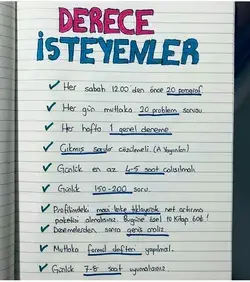 DERECE
İSTEYENLER
✓ Her sabah 12.00 den önce 20 paragraf
✓ Her gün mutlaka 20 problem sorusu
✓ Her hafta 1 genel deneme
✓ Çıkmış sorular çözülmeli. (A Yayınları)
✓ Günlük en az 4-5 saat çalışılmalı
✓ Günlük 150-200 soru
✓ Profilimdeki mavi linke tıklayarak net artırma
paketini almalısınız. Bugüne özel 10 Kitap
✓ Denemelerden sonra geniş analiz
✓ Mutlaka formül defteri yapılmalı.
✓ Günlük 7-8 saat uyumalısınız.